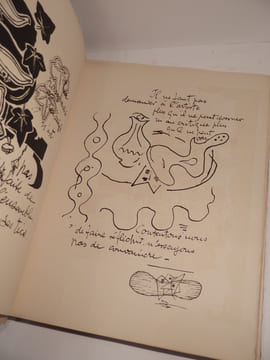 Il ne faut pas
demander à l'artiste
plus qu'il ne peut donner
ni au critique plus
qu'il ne peut
voir
Contentons nous
de faire réfléchir, n'essayons
pas de convaincre -